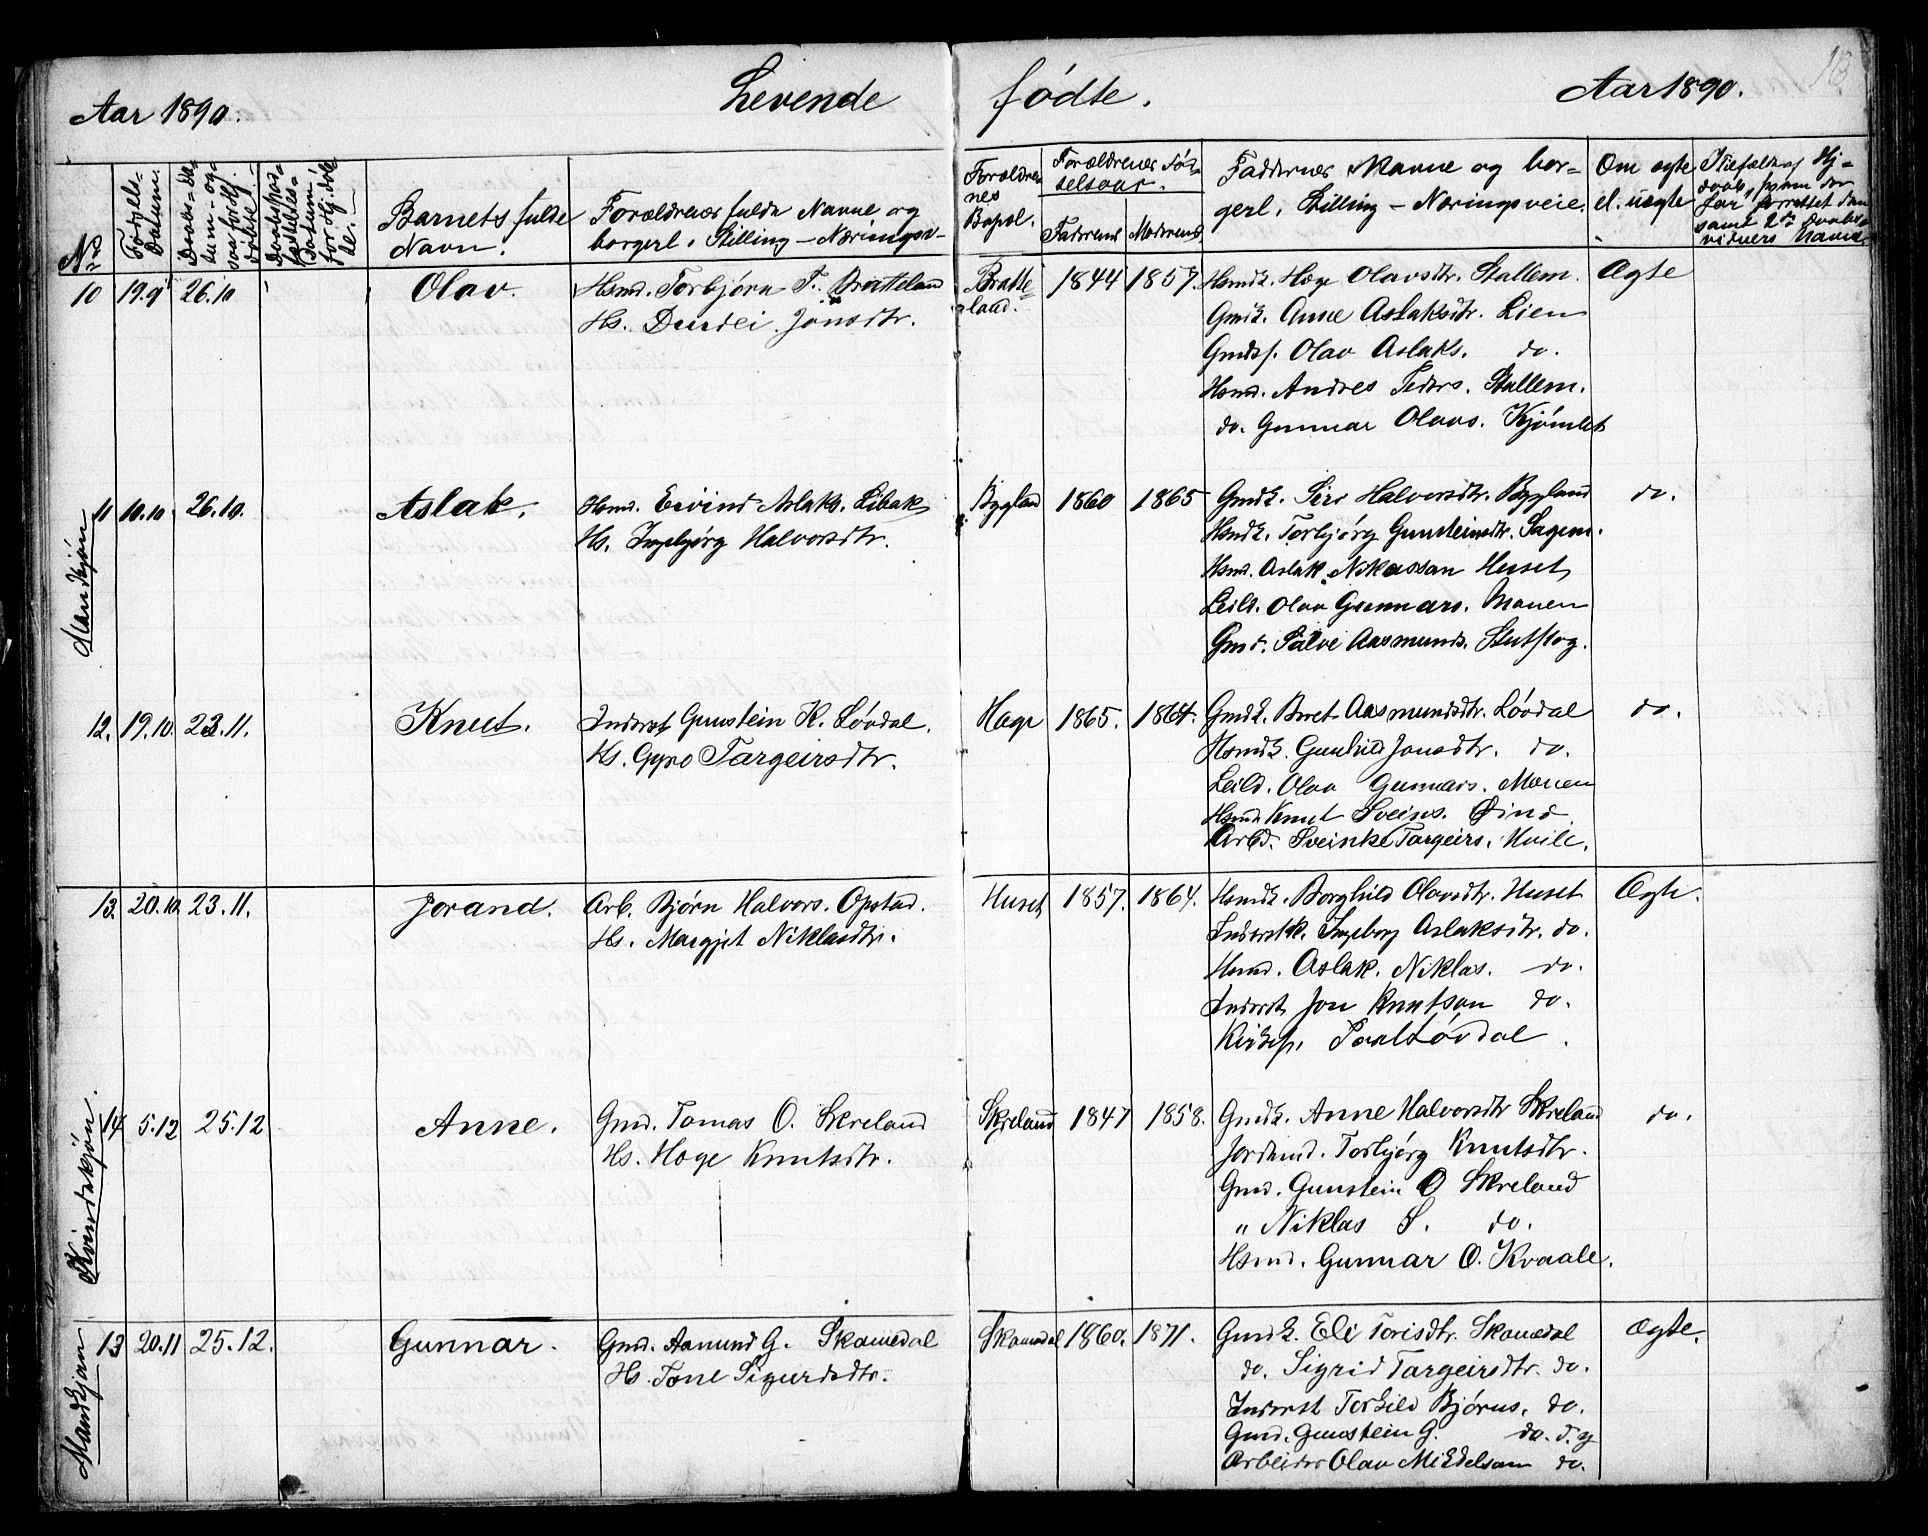 18
Aar 1890. Levende fødte. Aar 1890.
No
Fødsels-Datum.
Barnets fulde Navn.
Forældrenes fulde Navne og borgerl. Stilling – Næringsv-
Forældrenes Bopæl.
Forældrenes Fødselsaar.
Faderens Moderens
Faddernes Navne og borgerl. Stilling – Næringsveie.
Om ægte el. uægte
Mandkjøn
10 19.9 26.10 Olav. Hsmd. Torbjørn T. Bratteland
Hs. Durdei Jonsdtr.
Bratteland. 1844 1857. Hsmdk. Hæge Olavsdtr. Stallem. Ægte
Gmdk. Anne Aslaksdtr. Lien
Gmdss. Olav Aslaks. do.
Hsmd. Andres Peders. Stallem.
do. Gunnar Olavs.
11 10.10 26.10. Aslak. Hsmd. Eivind Aslaks. Libak
Hs. Ingebjørg Halvorsdtr.
Bygland 1860 1865 Gmdk. Siri Halvorsdtr. Bygland do.
Hsmdk. Torbjørg Gunsteinsdtr. Sagen.
Hsmd. Aslak Niklassøn Huset
Leild. Olav Gunnars. Monen
Gmd. Salve Aasmunds.
12. 19.10. 23.11. Knut. Inderst Gunstein K. Løvdal.
Hs. Gyro Targeirsdtr.
Hæge 1865. 1864. Gmdk. Biret Aasmundsdtr. Løvdal do.
Hsmdk. Gunhild Jonsdtr. do.
Leild. Olav Gunnars. Moenen
Hsmd. Knut Sveins.
Arbd. Sveinke Targeirs.
Kvindekjøn.
13. 20.10. 23.11. Jorand. Arb. Bjørn Halvors. Opstad.
Hs. Margjit Niklasdtr.
Huset 1857. 1864. Hsmdk. Borghild Olavsdtr. Huset Ægte.
Inderstk. Ingeborg Aslaksdtr. do.
Hsmd. Aslak Niklas. do.
Inderst Jon Knutsøn do.
Kirkes. Paal Løvdal.
14 5.12 25.12 Anne. Gmd. Tomas O. Skreland
Hs. Hæge Knutsdtr.
Skreland 1847 1858. Gmdk. Anne Halvorsdtr Skreland do.
Jordmd. Torbjørg Knutsdtr.
Gmd. Gunstein O Skreland
" Niklas S. do.
Hsmd. Gunnar O. Kvaale.
Mandkjøn
13 20.11 25.12. Gunnar. Gmd. Aamund G. Skamedal
Hs. Tone Sigurdsdtr.
Skamedal 1860. 1871. Gmdk. Eli Torisdtr. Skamedal Ægte.
do. Sigrid Targeirsdtr. do.
Inderst Torkild Bjørns. do.
Gmd. Gunstein G. do. d.y
Arbeider Olav Mikkelsøn do.